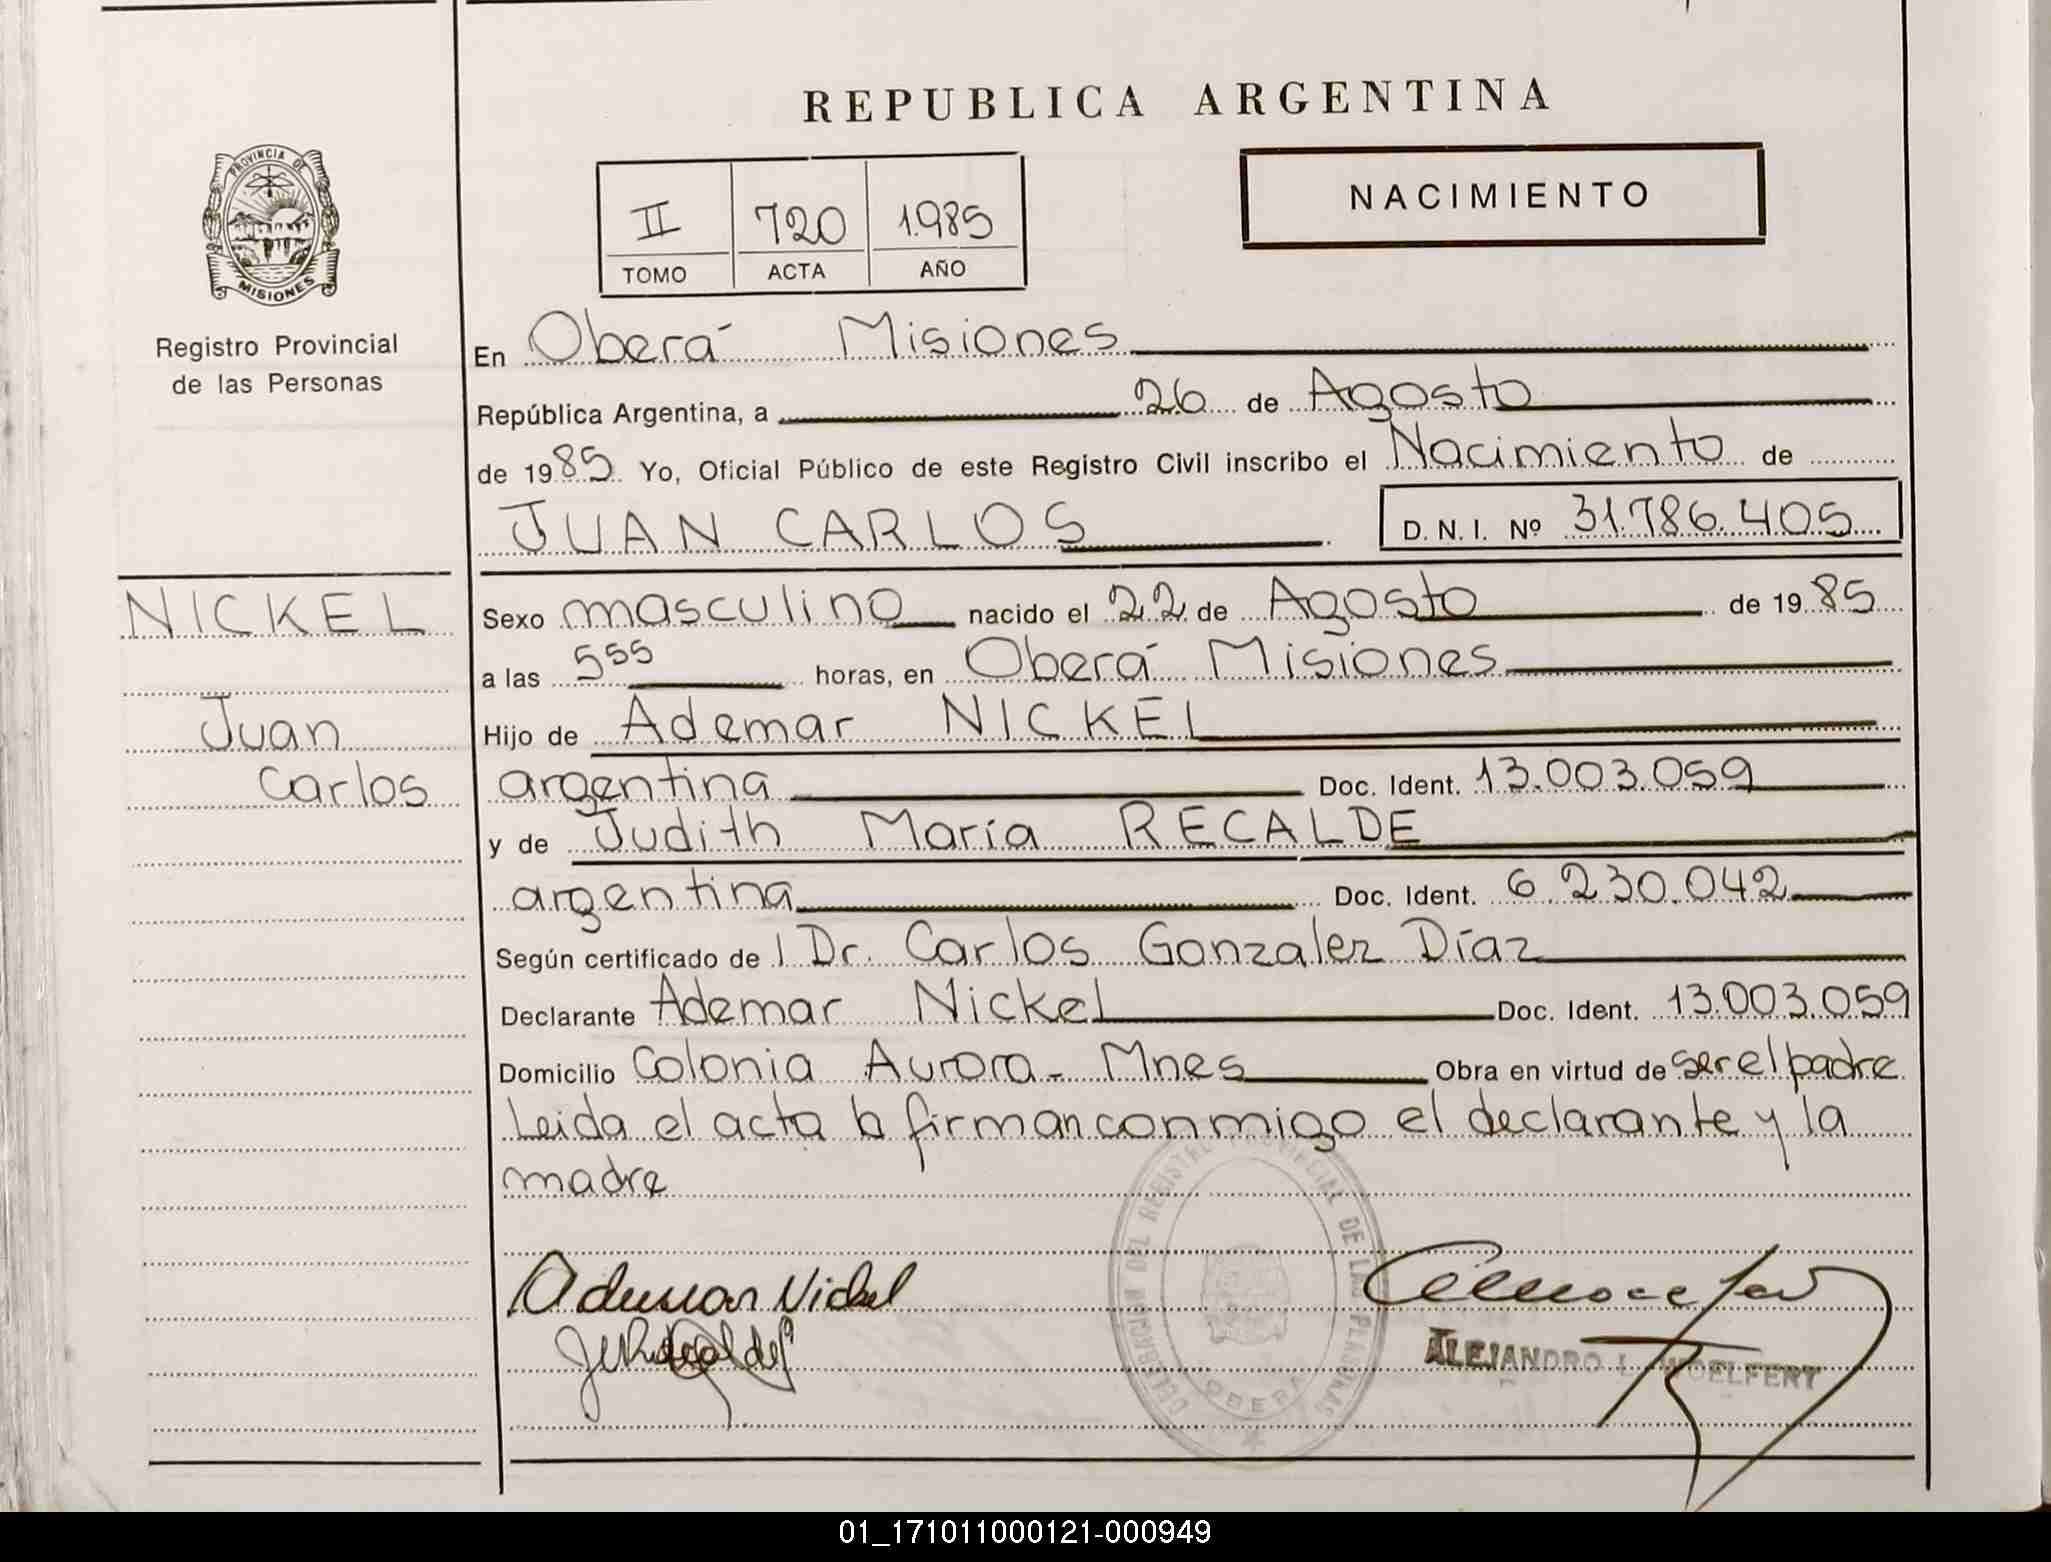 REPUBLICA ARGENTINA
NACIMIENTO
II 720 1.985
TOMO ACTA AÑO
PROVINCIA DE MISIONES
Registro Provincial
de las Personas
En Oberá Misiones
República Argentina, a 26 de Agosto
de 1985 Yo, Oficial Público de este Registro Civil inscribo el Nacimiento de
JUAN CARLOS D. N. I. Nº 31.786.405
NICKEL
Juan
Carlos
Sexo masculino nacido el 22 de Agosto de 1985
a las 5 55 horas, en Oberá Misiones
Hijo de Ademar NICKEL
argentina Doc. Ident. 13.003.059
y de Judith María RECALDE
argentina Doc. Ident. 6.230.042
Según certificado de l Dr. Carlos Gonzalez Díaz
Declarante Ademar Nickel Doc. Ident. 13.003.059
Domicilio Colonia Aurora - Mnes Obra en virtud de ser el padre
Leida el acta la firman conmigo el declarante y la
madre
DELEGACION DEL REGISTRO PROVINCIAL DE LAS PERSONAS
OBERA
Ademar Nickel
ALEJANDRO L. WOELFERT
01_171011000121-000949